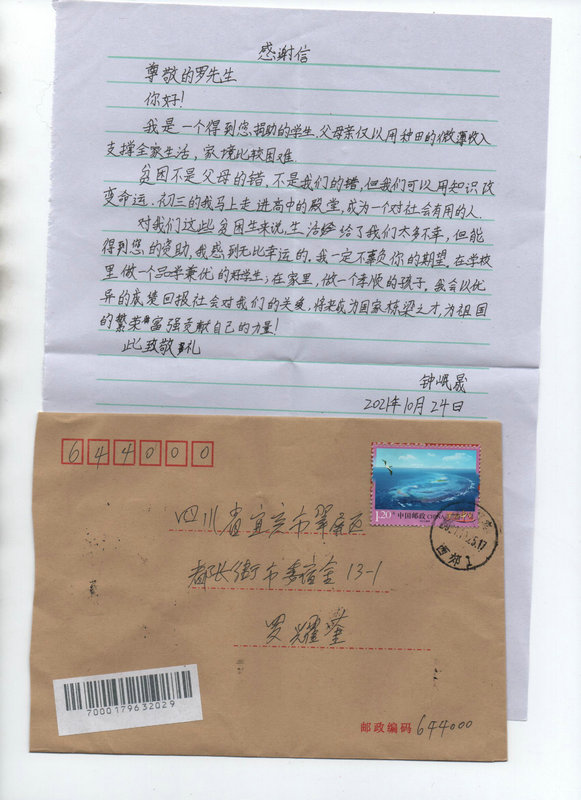 感谢信
尊敬的罗先生
你好！
我是一个得到您捐助的学生.父母亲仅以用种田的微薄收入
支撑全家生活，家境比较困难.
贫困不是父母的错，不是我们的错，但我们可以用知识改
变命运.初三的我马上走进高中的殿堂，成为一个对社会有用的人.
对我们这些贫困生来说，生活给了我们太多不幸，但能
得到您的资助，我感到无比幸运的，我一定不辜负你的期望，在学校
里做一个品学兼优的好学生；在家里，做一个孝顺的孩子，我会以优
异的成绩回报社会对我们的关爱，将来成为国家栋梁之才，为祖国
的繁荣富强贡献自己的力量！
此致敬礼
钟岷晟
2021年10月24日
644000
1.20元 中国邮政 CHINA
四川省宜宾市翠屏区
都长街市委宿舍13-1
罗耀
西郊
7000179632029
邮政编码 644000